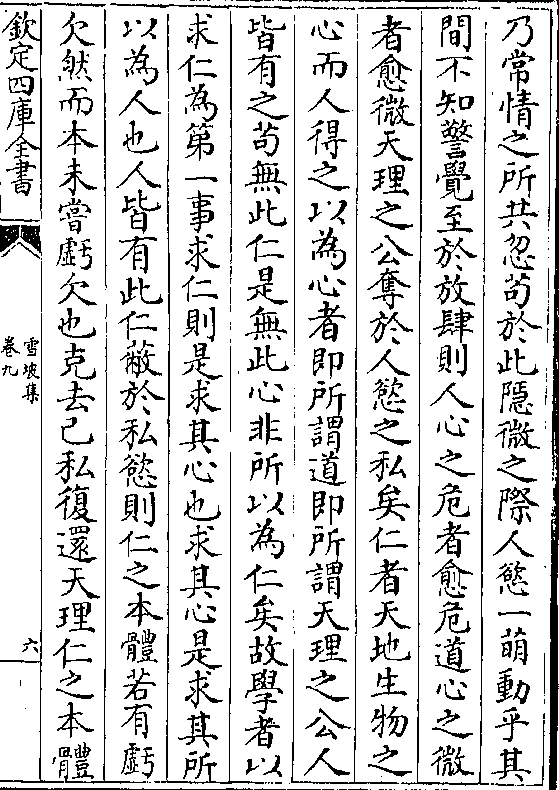 乃常情之所共忽苟於此隱微之際人慾一萌動乎其
間不知警覺至於放肆則人心之危者愈危道心之微
者愈微天理之公奪於人慾之私矣仁者天地生物之
心而人得之以為心者即所謂道即所謂天理之公人
皆有之苟無此仁是無此心非所以為仁矣故學者以
求仁為第一事求仁則是求其心也求其心是求其所
以為人也人皆有此仁蔽於私慾則仁之本體若有虧
欠然而本未嘗虧欠也克去己私復還天理仁之本體
欽定四庫全書
雪坡集
卷九
六